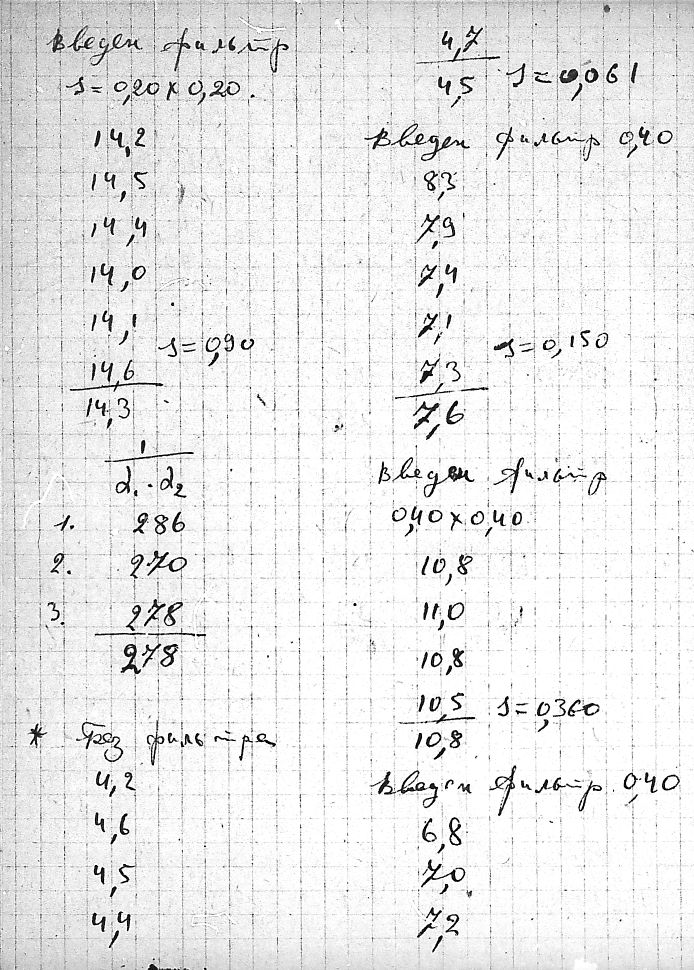 Введен фильтр
s=0,20×0,20.
14,2
14,5
14,4
14,0
14,1
s=0,90
14,6
14,3
1
α₁·α₂
1. 286
2. 270
3. 278
278
* Без фильтра
4,2
4,6
4,5
4,4
4,7
4,5 s=0,061
Введен фильтр 0,40
8,3
7,9
7,4
7,1
s=0,150
7,3
7,6
Введен фильтр
0,40×0,40
10,8
11,0
10,8
10,5 s=0,360
10,8
Введен фильтр 0,40
6,8
7,0
7,2